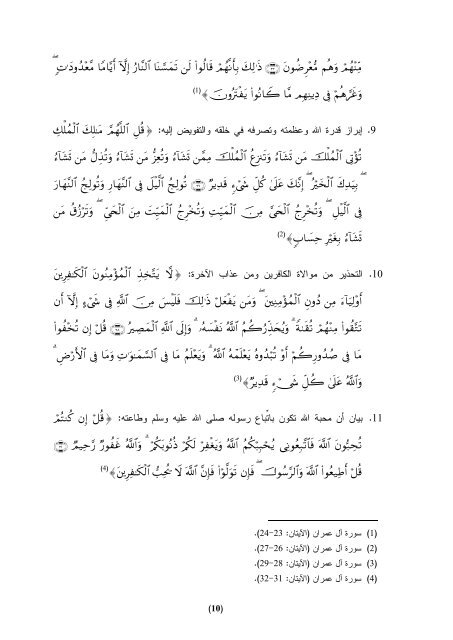 مِّنْهُمْ وَهُم مُّعْرِضُونَ ۝ ذَٰلِكَ بِأَنَّهُمْ قَالُوا۟ لَن تَمَسَّنَا ٱلنَّارُ إِلَّآ أَيَّامًا مَّعْدُودَٰتٍ ۖ
وَغَرَّهُمْ فِى دِينِهِم مَّا كَانُوا۟ يَفْتَرُونَ﴾(1)
9. إبراز قدرة الله وعظمته وتصرفه في خلقه والتفويض إليه: ﴿قُلِ ٱللَّهُمَّ مَٰلِكَ ٱلْمُلْكِ
تُؤْتِى ٱلْمُلْكَ مَن تَشَآءُ وَتَنزِعُ ٱلْمُلْكَ مِمَّن تَشَآءُ وَتُعِزُّ مَن تَشَآءُ وَتُذِلُّ مَن تَشَآءُ
ۖ بِيَدِكَ ٱلْخَيْرُ ۖ إِنَّكَ عَلَىٰ كُلِّ شَىْءٍ قَدِيرٌ ۝ تُولِجُ ٱلَّيْلَ فِى ٱلنَّهَارِ وَتُولِجُ ٱلنَّهَارَ
فِى ٱلَّيْلِ ۖ وَتُخْرِجُ ٱلْحَىَّ مِنَ ٱلْمَيِّتِ وَتُخْرِجُ ٱلْمَيِّتَ مِنَ ٱلْحَىِّ ۖ وَتَرْزُقُ مَن
تَشَآءُ بِغَيْرِ حِسَابٍ﴾(2)
10. التحذير من موالاة الكافرين ومن عذاب الآخرة: ﴿لَّا يَتَّخِذِ ٱلْمُؤْمِنُونَ ٱلْكَٰفِرِينَ
أَوْلِيَآءَ مِن دُونِ ٱلْمُؤْمِنِينَ ۖ وَمَن يَفْعَلْ ذَٰلِكَ فَلَيْسَ مِنَ ٱللَّهِ فِى شَىْءٍ إِلَّآ أَن
تَتَّقُوا۟ مِنْهُمْ تُقَىٰةً ۗ وَيُحَذِّرُكُمُ ٱللَّهُ نَفْسَهُۥ ۗ وَإِلَى ٱللَّهِ ٱلْمَصِيرُ ۝ قُلْ إِن تُخْفُوا۟
مَا فِى صُدُورِكُمْ أَوْ تُبْدُوهُ يَعْلَمْهُ ٱللَّهُ ۗ وَيَعْلَمُ مَا فِى ٱلسَّمَٰوَٰتِ وَمَا فِى ٱلْأَرْضِ ۗ
وَٱللَّهُ عَلَىٰ كُلِّ شَىْءٍ قَدِيرٌ﴾(3)
11. بيان أن محبة الله تكون باتّباع رسوله صلى الله عليه وسلم وطاعته: ﴿قُلْ إِن كُنتُمْ
تُحِبُّونَ ٱللَّهَ فَٱتَّبِعُونِى يُحْبِبْكُمُ ٱللَّهُ وَيَغْفِرْ لَكُمْ ذُنُوبَكُمْ ۗ وَٱللَّهُ غَفُورٌ رَّحِيمٌ ۝
قُلْ أَطِيعُوا۟ ٱللَّهَ وَٱلرَّسُولَ ۖ فَإِن تَوَلَّوْا۟ فَإِنَّ ٱللَّهَ لَا يُحِبُّ ٱلْكَٰفِرِينَ﴾(4)
(1) سورة آل عمران (الآيتان: 23-24).
(2) سورة آل عمران (الآيتان: 26-27).
(3) سورة آل عمران (الآيتان: 28-29).
(4) سورة آل عمران (الآيتان: 31-32).
(10)